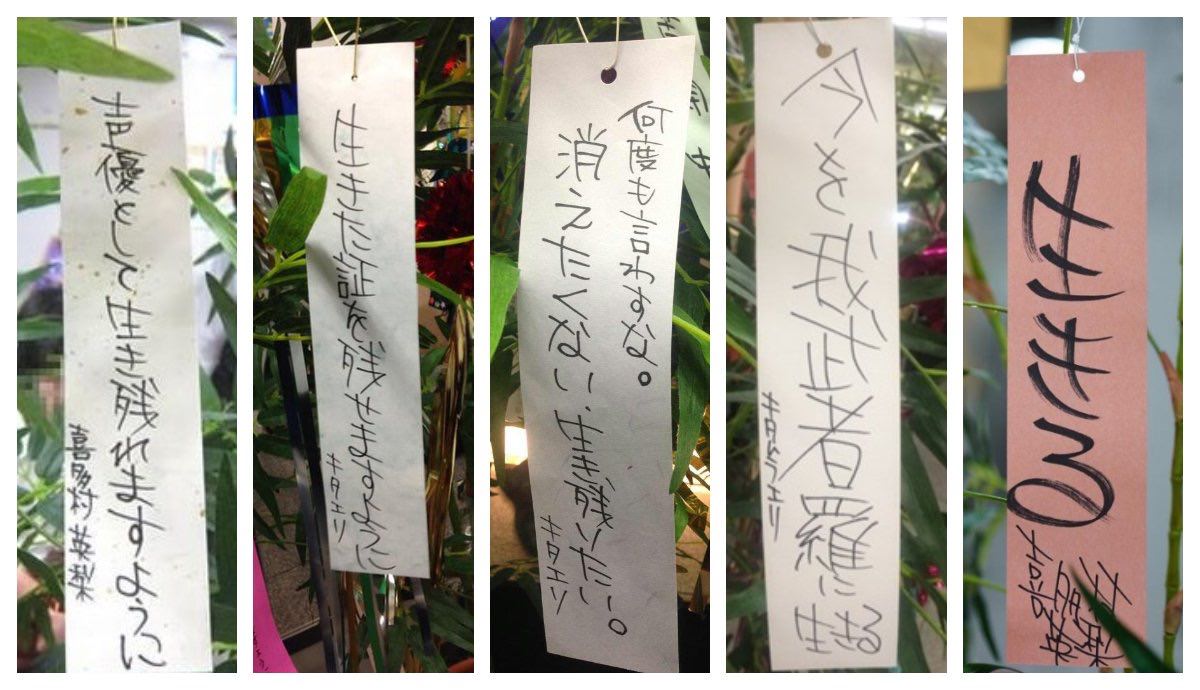 声優として生き残れますように
喜多村英梨
生きた証を残せますように
キタエリ
何度も言わすな。
消えたくない、生き残りたい。
キタエリ
今を我武者羅に生きる
キタムラエリ
生きる